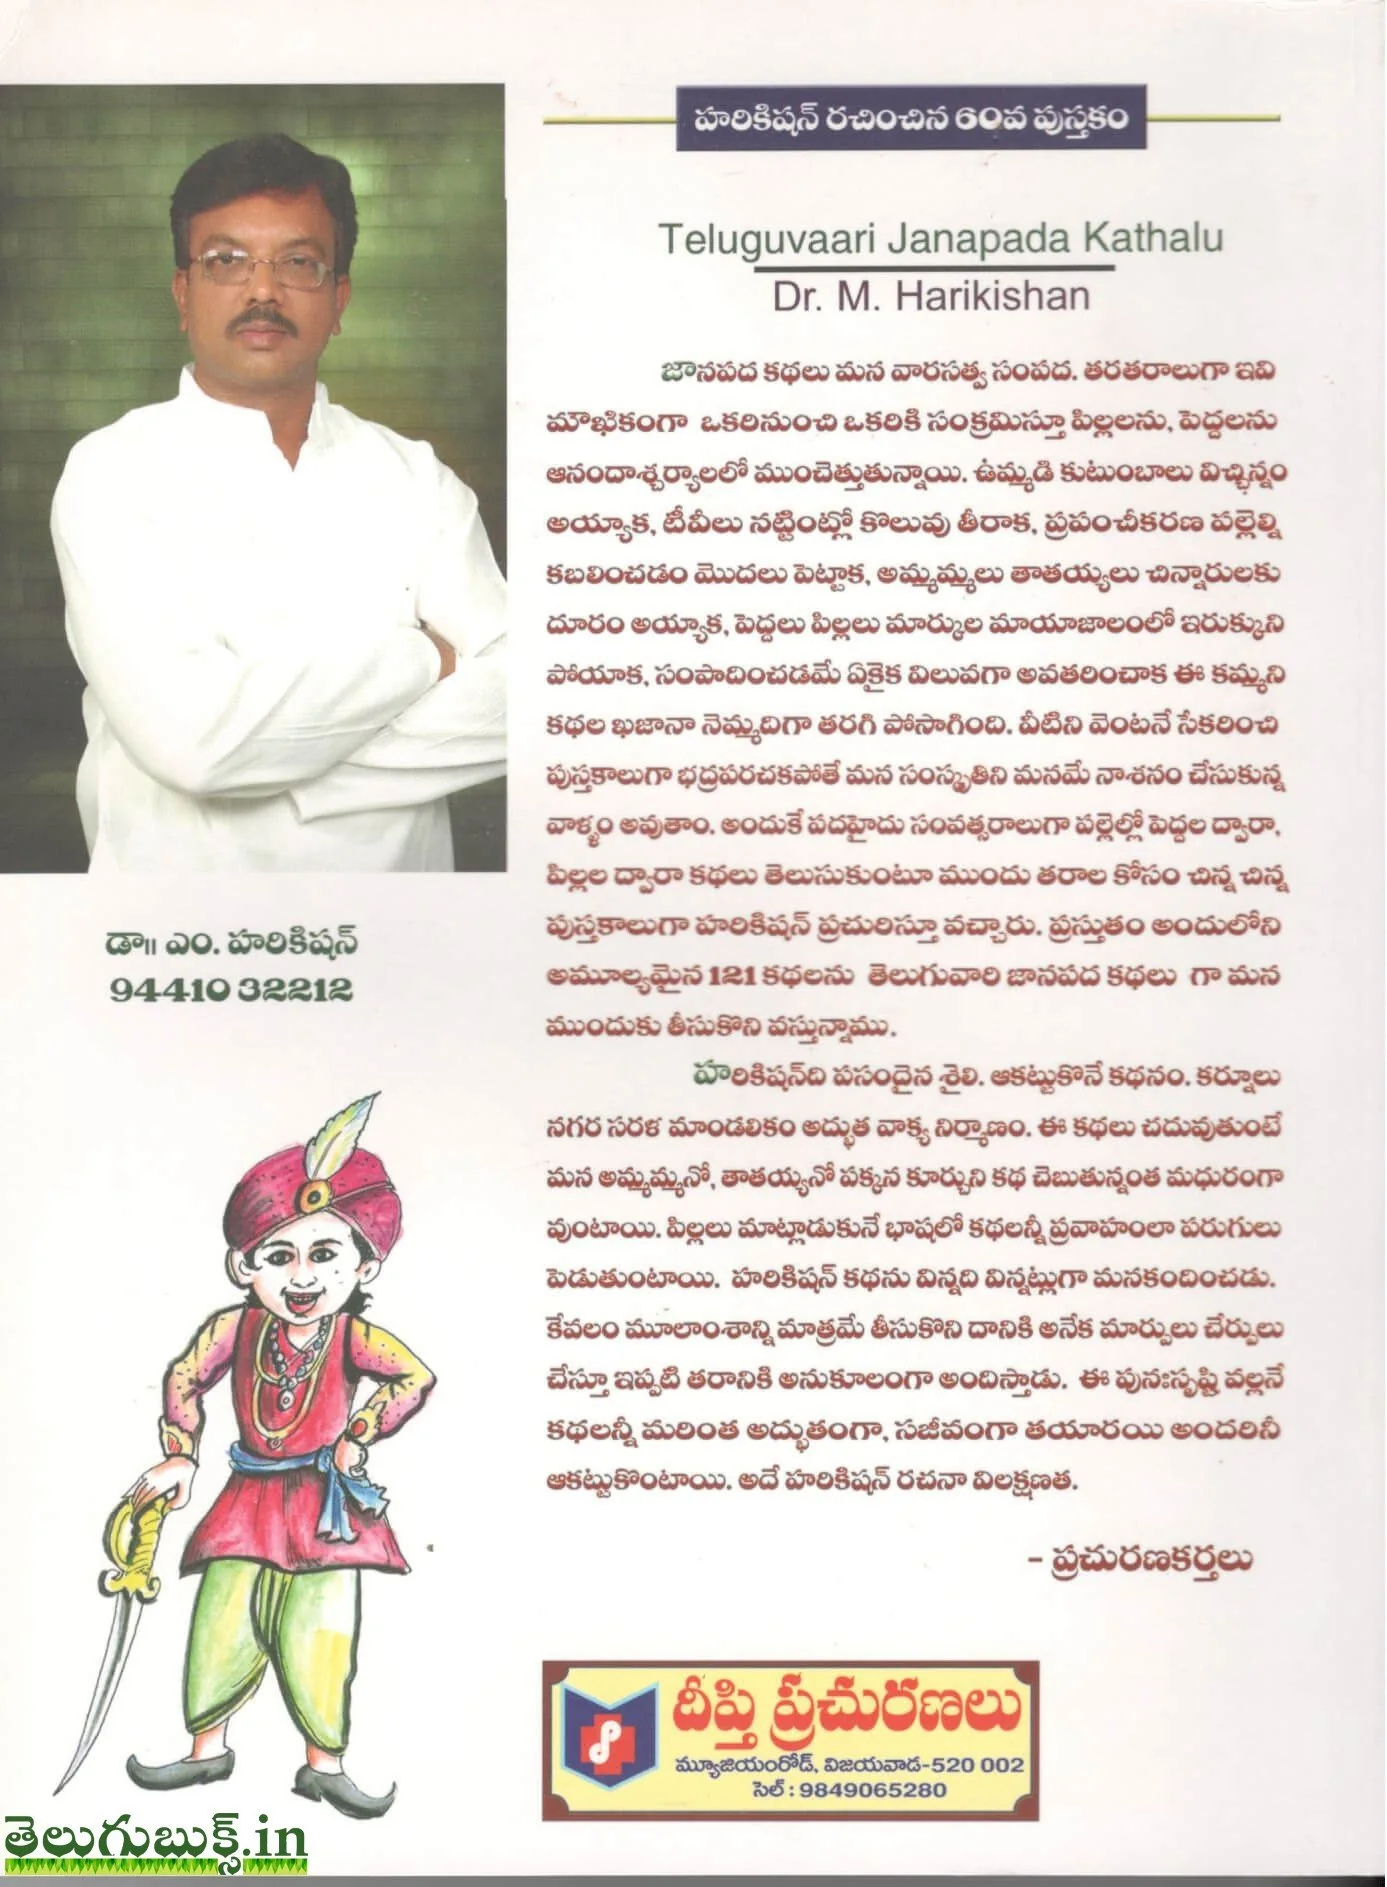 హరికిషన్ రచించిన 60వ పుస్తకం
Teluguvaari Janapada Kathalu
Dr. M. Harikishan
జానపద కథలు మన వారసత్వ సంపద. తరతరాలుగా ఇవి
మౌఖికంగా ఒకరినుంచి ఒకరికి సంక్రమిస్తూ పిల్లలను, పెద్దలను
ఆనందాశ్చర్యాలలో ముంచెత్తుతున్నాయి. ఉమ్మడి కుటుంబాలు విచ్ఛిన్నం
అయ్యాక, టీవీలు నట్టింట్లో కొలువు తీరాక, ప్రపంచీకరణ పల్లెల్ని
కబలించడం మొదలు పెట్టాక, అమ్మమ్మలు తాతయ్యలు చిన్నారులకు
దూరం అయ్యాక, పెద్దలు పిల్లలు మార్కుల మాయాజాలంలో ఇరుక్కుని
పోయాక, సంపాదించడమే ఏకైక విలువగా అవతరించాక ఈ కమ్మని
కథల ఖజానా నెమ్మదిగా తరగి పోసాగింది. వీటిని వెంటనే సేకరించి
పుస్తకాలుగా భద్రపరచకపోతే మన సంస్కృతిని మనమే నాశనం చేసుకున్న
వాళ్ళం అవుతాం. అందుకే పదహైదు సంవత్సరాలుగా పల్లెల్లో పెద్దల ద్వారా,
పిల్లల ద్వారా కథలు తెలుసుకుంటూ ముందు తరాల కోసం చిన్న చిన్న
పుస్తకాలుగా హరికిషన్ ప్రచురిస్తూ వచ్చారు. ప్రస్తుతం అందులోని
అమూల్యమైన 121 కథలను తెలుగువారి జానపద కథలు గా మన
ముందుకు తీసుకొని వస్తున్నాము.
హరికిషన్‌ది పసందైన శైలి. ఆకట్టుకొనే కథనం. కర్నూలు
నగర సరళ మాండలికం అద్భుత వాక్య నిర్మాణం. ఈ కథలు చదువుతుంటే
మన అమ్మమ్మనో, తాతయ్యనో పక్కన కూర్చుని కథ చెబుతున్నంత మధురంగా
వుంటాయి. పిల్లలు మాట్లాడుకునే భాషలో కథలన్నీ ప్రవాహంలా పరుగులు
పెడుతుంటాయి. హరికిషన్ కథను విన్నది విన్నట్లుగా మనకందించడు.
కేవలం మూలాంశాన్ని మాత్రమే తీసుకొని దానికి అనేక మార్పులు చేర్పులు
చేస్తూ ఇప్పటి తరానికి అనుకూలంగా అందిస్తాడు. ఈ పునఃసృష్టి వల్లనే
కథలన్నీ మరింత అద్భుతంగా, సజీవంగా తయారయి అందరినీ
ఆకట్టుకొంటాయి. అదే హరికిషన్ రచనా విలక్షణత.
- ప్రచురణకర్తలు
డా॥ ఎం. హరికిషన్
94410 32212
దీప్తి ప్రచురణలు
మ్యూజియంరోడ్, విజయవాడ-520 002
సెల్ : 9849065280
తెలుగుబుక్స్.in